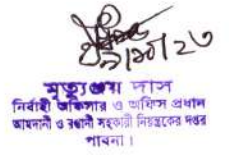 ৯/১০/২৩
মৃত্যুঞ্জয় দাস
নির্বাহী অফিসার ও অফিস প্রধান
আমদানী ও রপ্তানী সহকারী নিয়ন্ত্রকের দপ্তর
পাবনা।